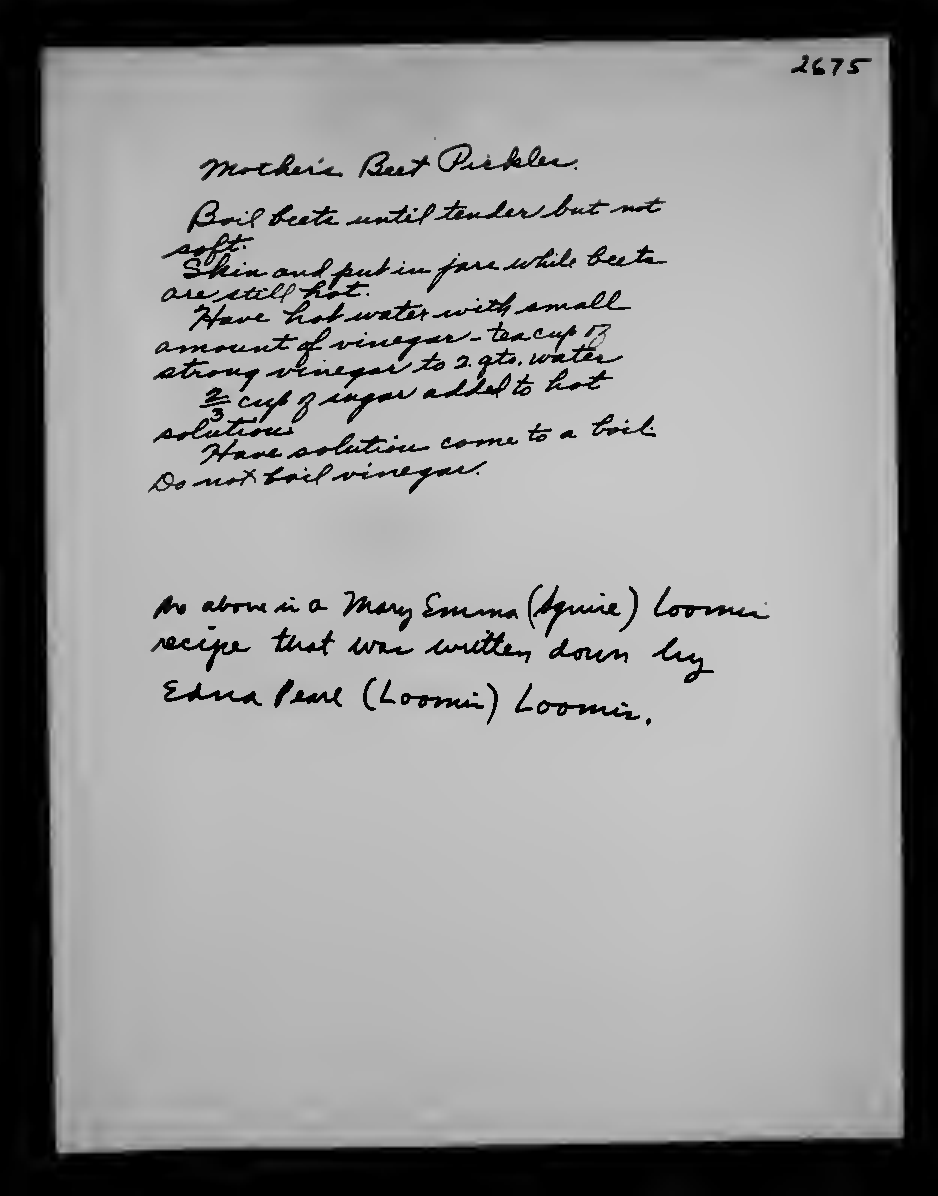 2675
Mother's Beet Pickles.
Boil beets until tender but not
soft.
Skin and put in jars while beets
are still hot.
Have hot water with small
amount of vinegar - teacup of
strong vinegar to 2 qts. water
2/3 cup of sugar added to hot
solution
Have solution come to a boil.
Do not boil vinegar.
above is a Mary Emma (Squire) Loomis
recipe that was written down by
Edna Pearl (Loomis) Loomis.